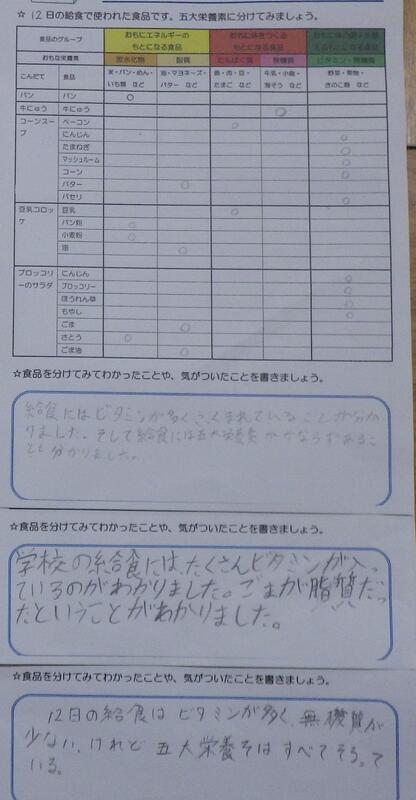 ☆ 12日の給食で使われた食品です。五大栄養素に分けてみましょう。
食品のグループ おもにエネルギーのもとになる食品 おもに体をつくるもとになる食品
おもな栄養素 炭水化物 脂質 たんぱく質 無機質 ビタミン・無機質
こんだて 食品 米・パン・めん・いも類 など 油・マヨネーズ・バター など 魚・肉・豆・たまご など 牛乳・小魚・海そう など 野菜・果物・きのこ類 など
パン パン ○
牛にゅう 牛にゅう ○
コーンスープ ベーコン ○
にんじん ○
たまねぎ ○
マッシュルーム ○
コーン ○
バター ○
パセリ ○
豆乳コロッケ 豆乳 ○
パン粉 ○
小麦粉 ○
油 ○
ブロッコリーのサラダ にんじん ○
ブロッコリー ○
ほうれん草 ○
もやし ○
ごま ○
さとう ○
ごま油 ○
☆食品を分けてみてわかったことや、気がついたことを書きましょう。
給食にはビタミンが多くふくまれていることが分か
りました。そして給食には五大栄養素がかならずあるこ
とも分かりました。
☆食品を分けてみてわかったことや、気がついたことを書きましょう。
学校の給食には、たくさんビタミンが入っ
ているのがわかりました。ごまが脂質だっ
たということがわかりました。
☆食品を分けてみてわかったことや、気がついたことを書きましょう。
12日の給食は ビタミンが多く、無機質が
少ない、けれど 五大栄養そは すべてそろって
いる。